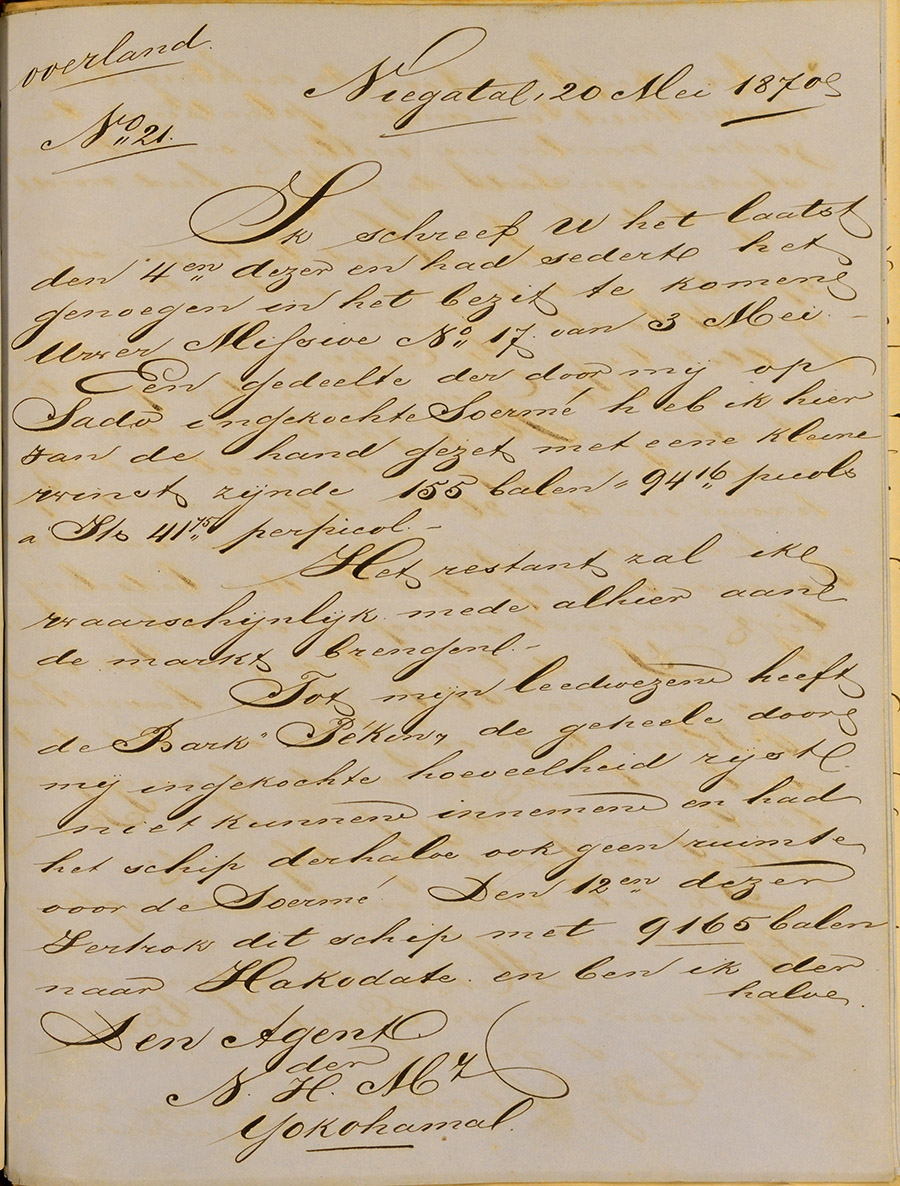 overland.
Niegata, 20 Mei 1870
No. 21.
Ik schreef U het laatst
den 4en dezer en had sedert het
genoegen in het bezit te komen
Uwer Missive No. 17 van 3 Mei. -
Een gedeelte der door mij op
Sado ingekochte Soermé heb ik hier
van de hand gezet met eene kleine
winst zijnde 155 balen " 94 16 picols
a Ibs 41 75 per picol. -
Het restant zal ik
waarschijnlijk mede alhier aan
de markt brengen. -
Tot mijn leedwezen heeft
de Bark "Pékin" de geheele door
mij ingekochte hoeveelheid rijst
niet kunnen innemen en had
het schip derhalve ook geen ruimte
voor de Soermé. Den 12en dezer
vertrok dit schip met 9165 balen
naar Hakodate en ben ik der
halve
Den Agent
der
N. H. My
Yokohama.